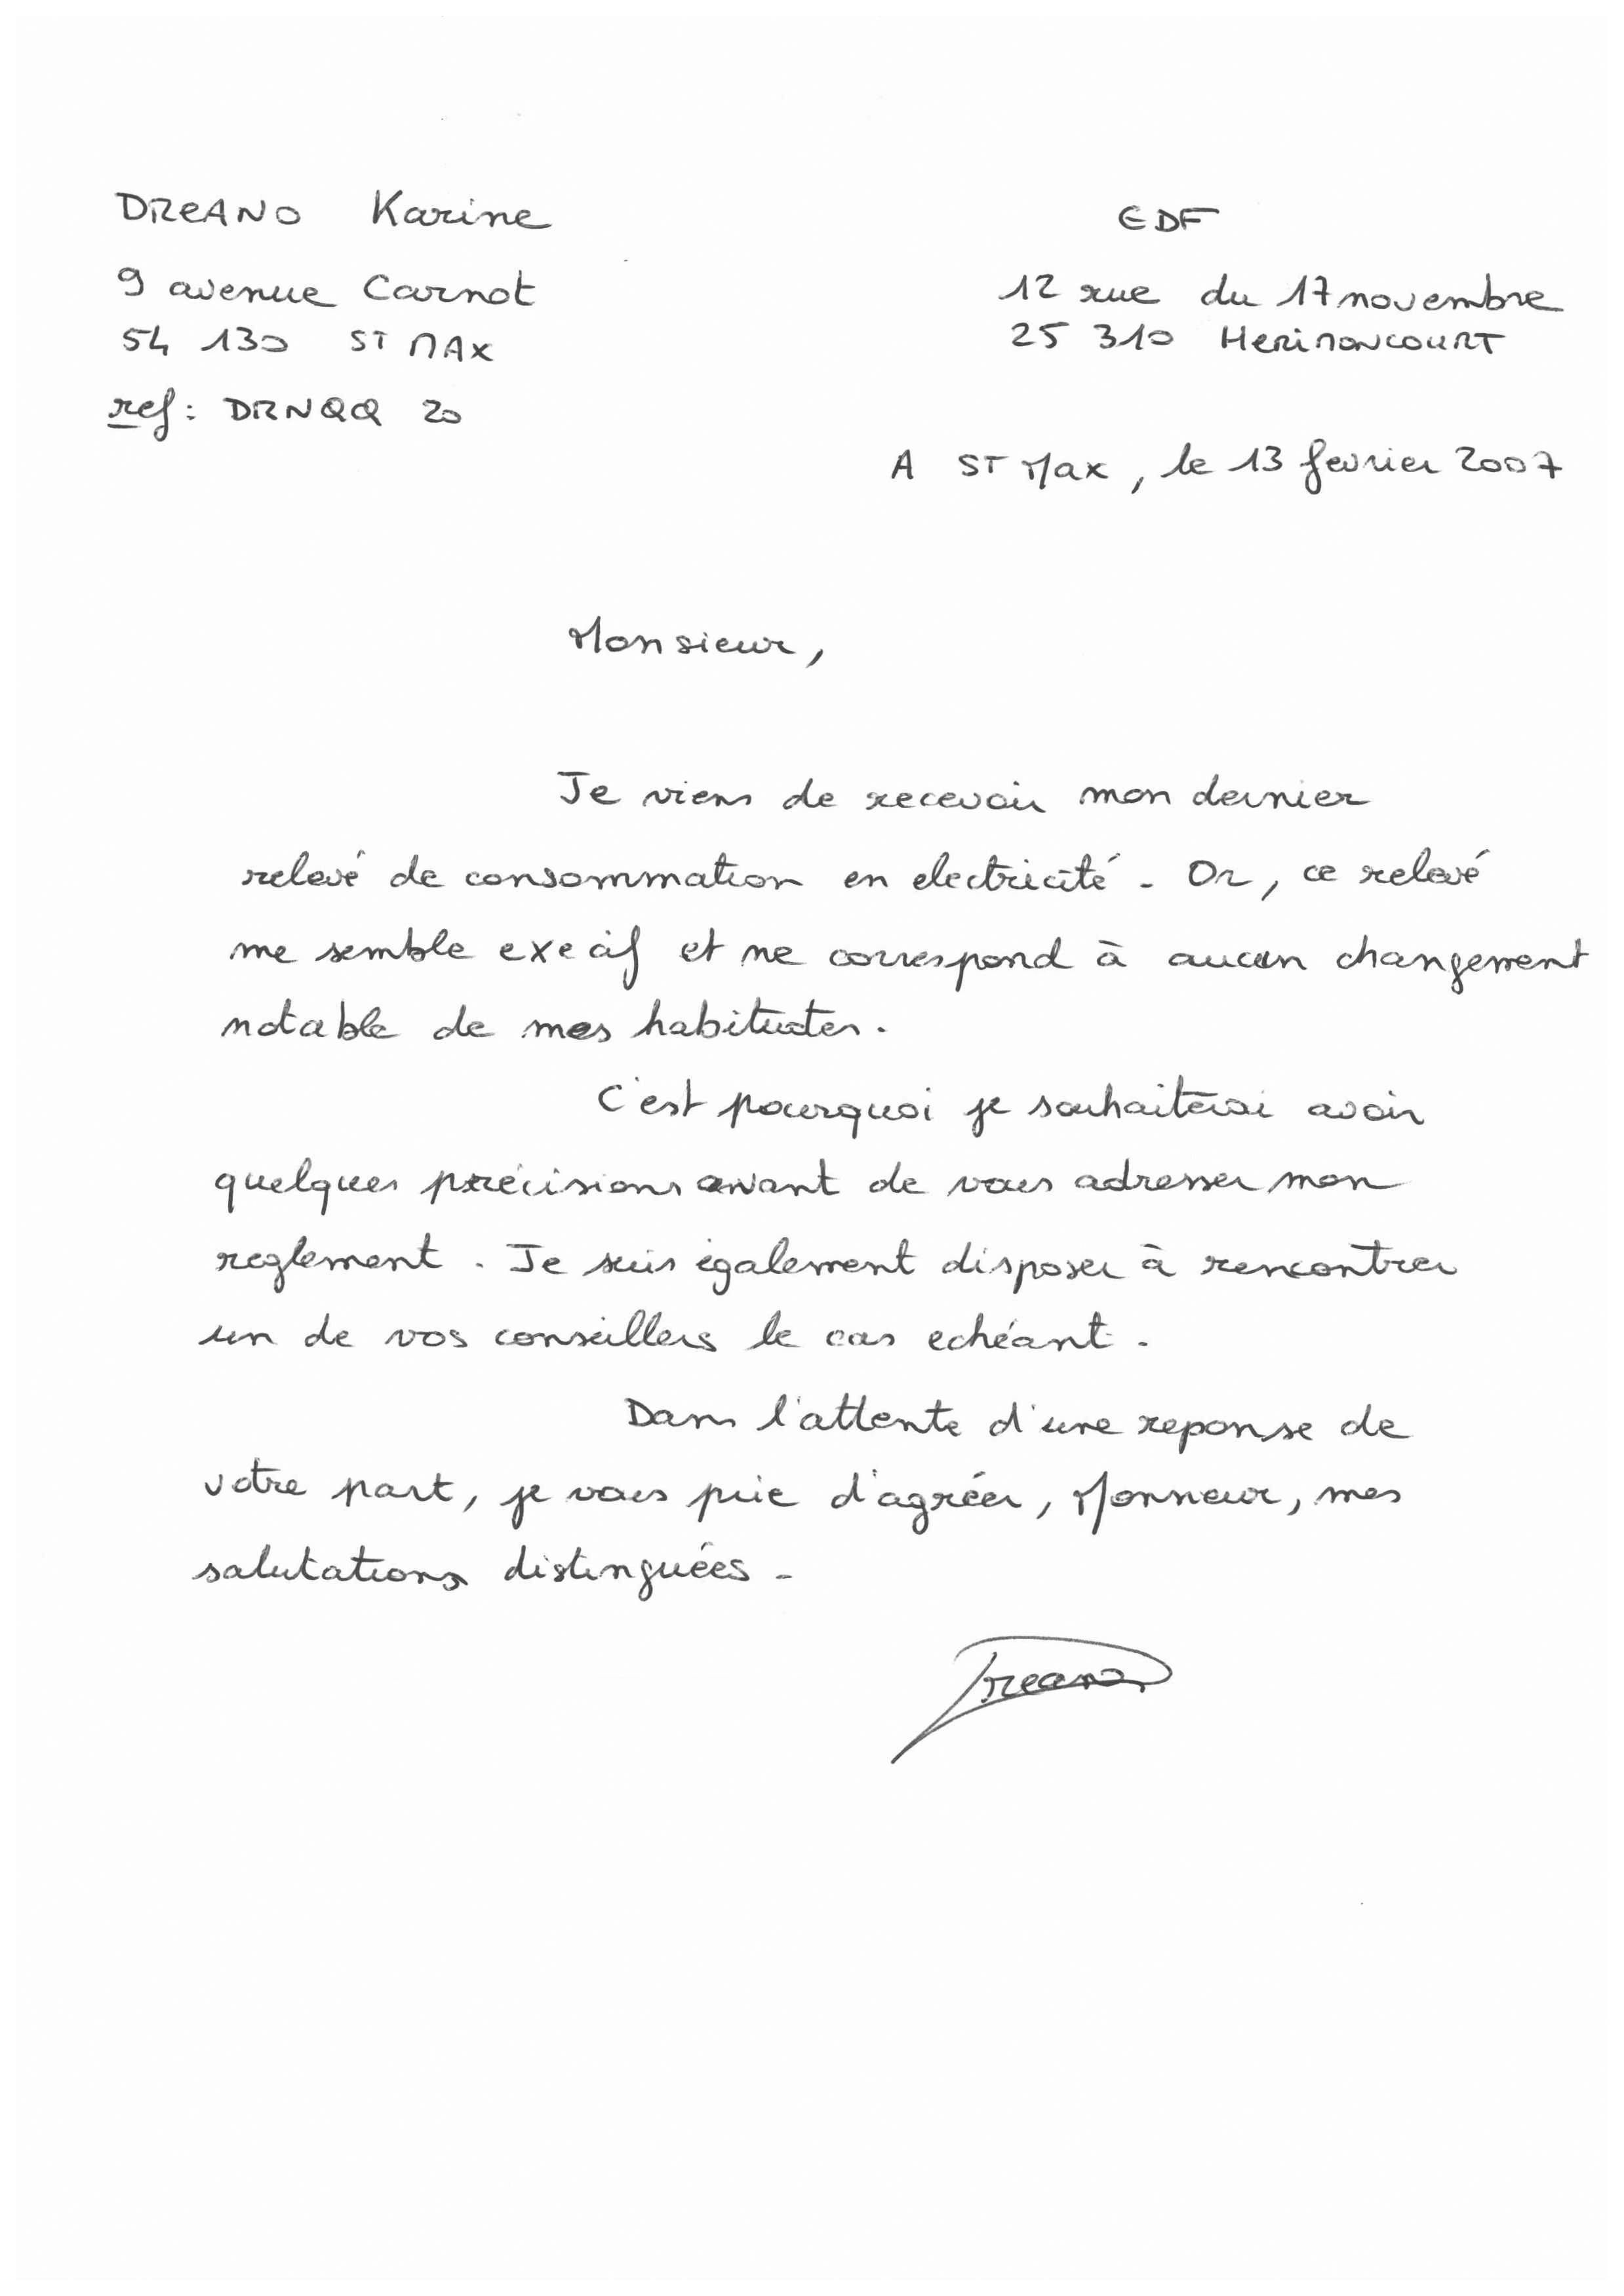 DREANO Karine
9 avenue Carnot
54 130 ST MAX
ref : DRNQQ 20
EDF
12 rue du 17 novembre
25 310 HERIMONCOURT
A ST Max, le 13 fevrier 2007
Monsieur,
Je viens de recevoir mon dernier
relevé de consommation en electricité. Or, ce relevé
me semble execif et ne correspond à aucun changement
notable de mes habitudes.
C'est pourquoi je souhaiterai avoir
quelques précisions avant de vous adresser mon
reglement. Je suis également disposer à rencontrer
un de vos conseillers le cas echéant.
Dans l'attente d'une reponse de
votre part, je vous prie d'agréer, Monsieur, mes
salutations distinguées.
Dreano